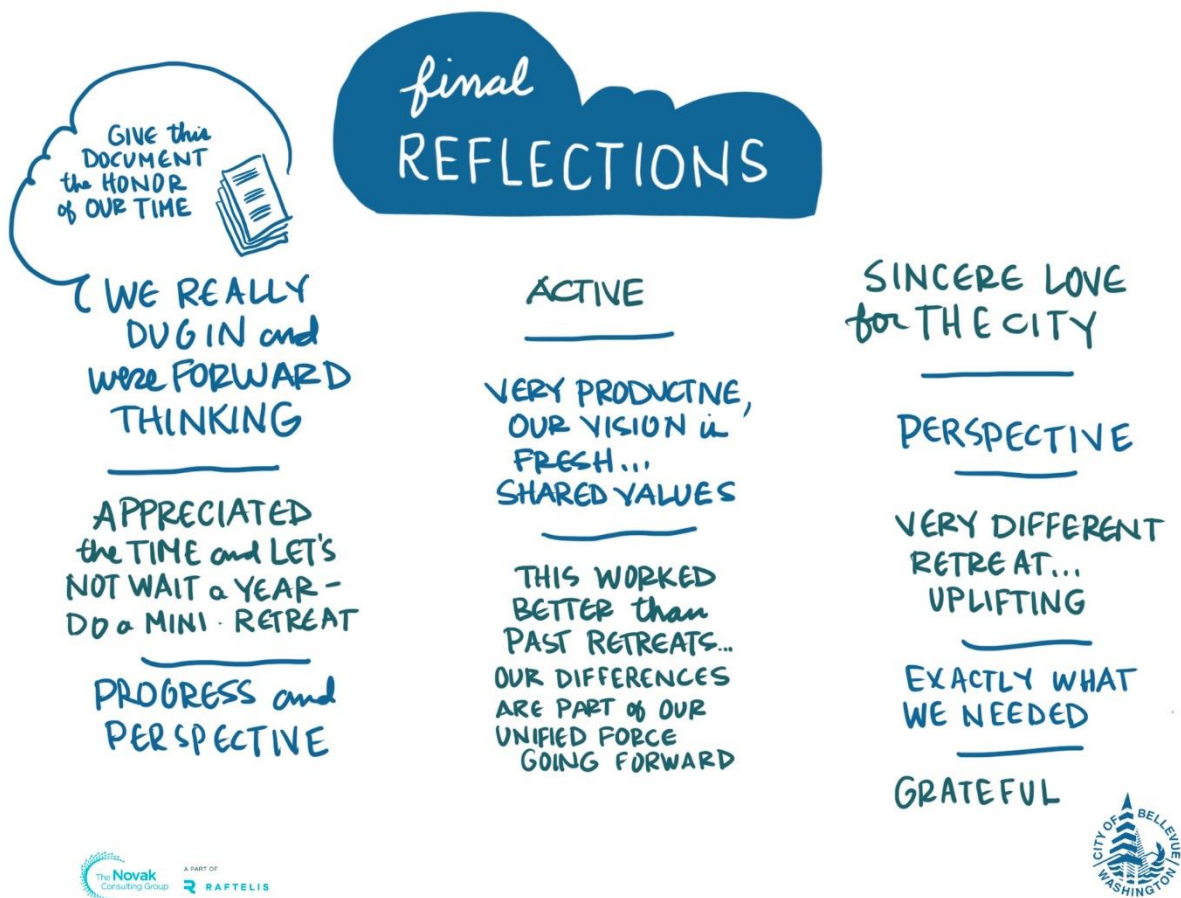 final
REFLECTIONS
GIVE this
DOCUMENT
the HONOR
of OUR TIME
WE REALLY
DUG IN and
were FORWARD
THINKING
APPRECIATED
the TIME and LET'S
NOT WAIT a YEAR -
DO a MINI · RETREAT
PROGRESS and
PERSPECTIVE
ACTIVE
VERY PRODUCTIVE,
OUR VISION is
FRESH...
SHARED VALUES
THIS WORKED
BETTER than
PAST RETREATS...
OUR DIFFERENCES
ARE PART of OUR
UNIFIED FORCE
GOING FORWARD
SINCERE LOVE
for THE CITY
PERSPECTIVE
VERY DIFFERENT
RETREAT...
UPLIFTING
EXACTLY WHAT
WE NEEDED
GRATEFUL
The Novak
Consulting Group
A PART OF
RAFTELIS
CITY OF BELLEVUE
WASHINGTON